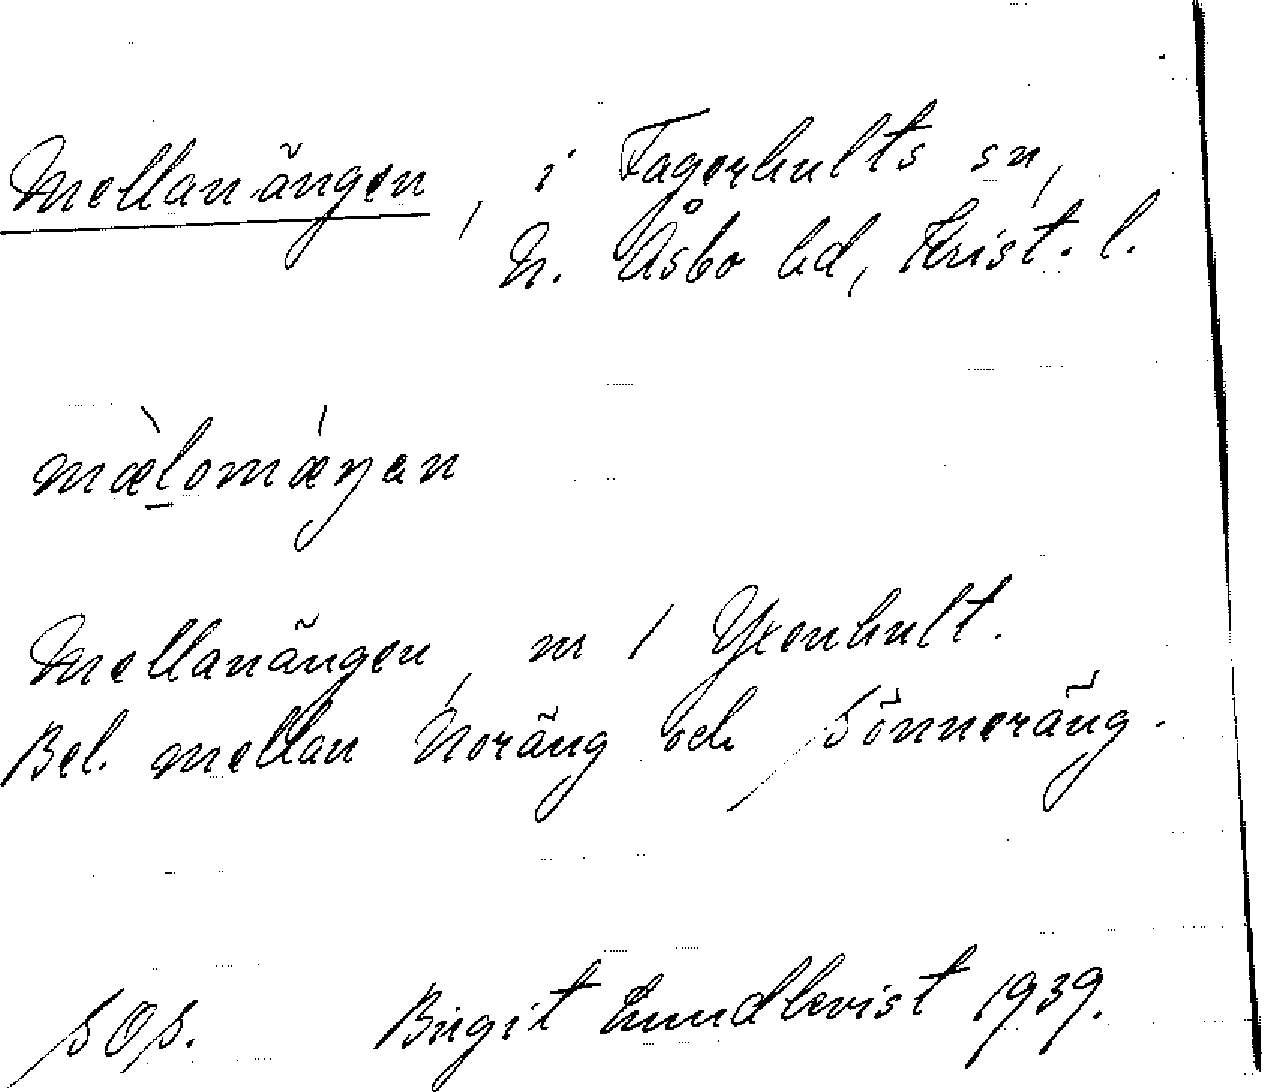 Mellanängen, i Fagerhults sn,
N. Åsbo hd, Krist. l.
mæ̀lomǽŋan
Mellanängen, m 1 Yxenhult.
Bel. mellan Noräng och Sönneräng.
SOS. Birgit Lundkvist 1939.